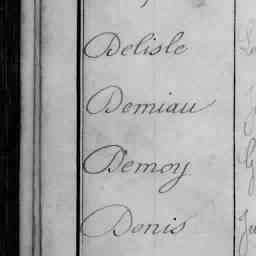 Delisle
Demiau
Demoy
Donis